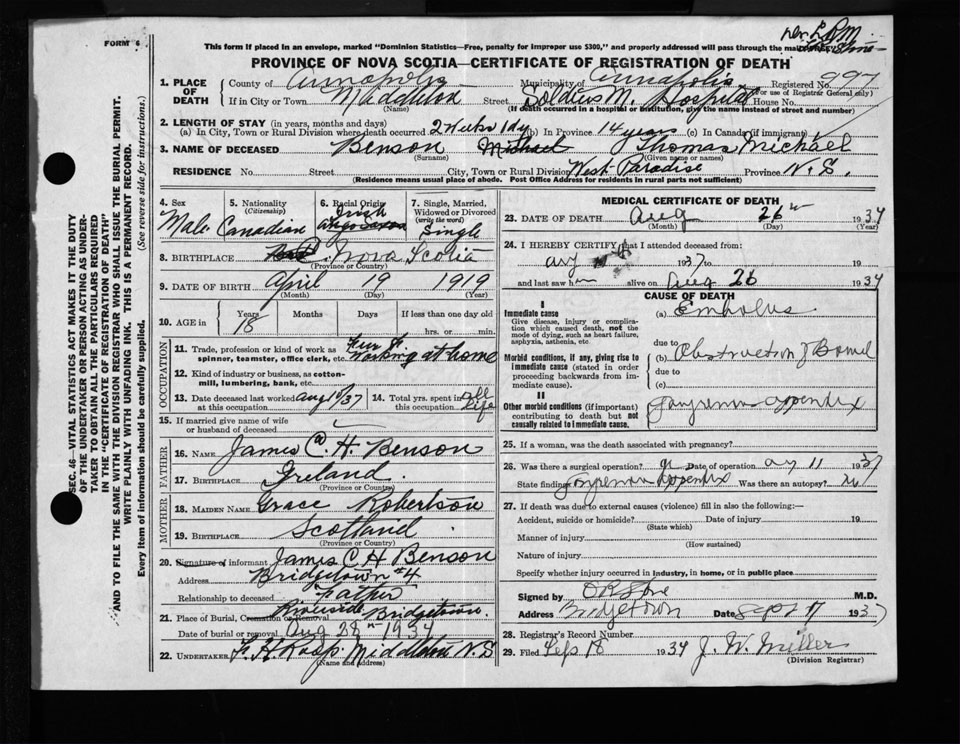 FORM 6
Dr. L.R.M.
This form if placed in an envelope, marked "Dominion Statistics—Free, penalty for improper use $300," and properly addressed will pass through the mail
PROVINCE OF NOVA SCOTIA—CERTIFICATE OF REGISTRATION OF DEATH
1. PLACE OF DEATH County of Annapolis Municipality of Annapolis Registered No. 997
(For use of Registrar General only)
If in City or Town Middleton Street Soldiers M. Hospital House No.
(Name) (If death occurred in a hospital or institution, give its name instead of street and number)
2. LENGTH OF STAY (in years, months and days)
(a) In City, Town or Rural Division where death occurred 2 weeks 1 dy (b) In Province 14 years (c) In Canada (if immigrant)
3. NAME OF DECEASED Benson Michael Thomas Michael
(Surname) (Given name or names)
RESIDENCE No. Street City, Town or Rural Division West Paradise Province N.S.
(Residence means usual place of abode. Post Office Address for residents in rural parts not sufficient)
4. Sex Male
5. Nationality (Citizenship) Canadian
6. Racial Origin Irish
7. Single, Married, Widowed or Divorced (write the word) Single
8. BIRTHPLACE Nova Scotia
(Province or Country)
9. DATE OF BIRTH April 19 1919
(Month) (Day) (Year)
10. AGE in Years 18 Months Days If less than one day
hrs. or min.
OCCUPATION
11. Trade, profession or kind of work as spinner, teamster, office clerk, etc. working at home
12. Kind of industry or business, as cotton-mill, lumbering, bank, etc.
13. Date deceased last worked at this occupation Aug 10/37
14. Total yrs. spent in this occupation all life
15. If married give name of wife or husband of deceased
FATHER
16. NAME James C. H. Benson
17. BIRTHPLACE Ireland
(Province or Country)
MOTHER
18. MAIDEN NAME Grace Robertson
19. BIRTHPLACE Scotland
(Province or Country)
20. Signature of informant James C H Benson
Address Bridgetown #4
Relationship to deceased Father
21. Place of Burial, Cremation or Removal Riverside Bridgetown
Date of burial or removal Aug 28th 1937
22. UNDERTAKER F. H. Roop Middleton N.S
(Name and address)
MEDICAL CERTIFICATE OF DEATH
23. DATE OF DEATH Aug 26th 1937
(Month) (Day) (Year)
24. I HEREBY CERTIFY that I attended deceased from:
Aug 1937 to 19
and last saw him alive on Aug 26 1937
CAUSE OF DEATH
I
Immediate cause
Give disease, injury or complication which caused death, not the mode of dying, such as heart failure, asphyxia, asthenia, etc.
(a) Embolus
due to
Morbid conditions, if any, giving rise to immediate cause (stated in order proceeding backwards from immediate cause).
(b) Obstruction of Bowel
due to
(c)
II
Other morbid conditions (if important) contributing to death but not causally related to immediate cause.
Gangrenous appendix
25. If a woman, was the death associated with pregnancy?
26. Was there a surgical operation? Date of operation Aug 11 1937
State findings Gangrenous Appendix Was there an autopsy? no
27. If death was due to external causes (violence) fill in also the following:—
Accident, suicide or homicide? Date of injury 19
(State which)
Manner of injury
(How sustained)
Nature of injury
Specify whether injury occurred in industry, in home, or in public place
Signed by M.D.
Address Bridgetown Date Sept 17 1937
28. Registrar's Record Number
29. Filed Sept 18 1937 J. W. Miller
(Division Registrar)
SEC. 46—VITAL STATISTICS ACT MAKES IT THE DUTY OF THE UNDERTAKER OR PERSON ACTING AS UNDERTAKER TO OBTAIN ALL THE PARTICULARS REQUIRED IN THE "CERTIFICATE OF REGISTRATION OF DEATH"
AND TO FILE THE SAME WITH THE DIVISION REGISTRAR WHO SHALL ISSUE THE BURIAL PERMIT.
WRITE PLAINLY WITH UNFADING INK. THIS IS A PERMANENT RECORD.
Every item of information should be carefully supplied. (See reverse side for instructions.)